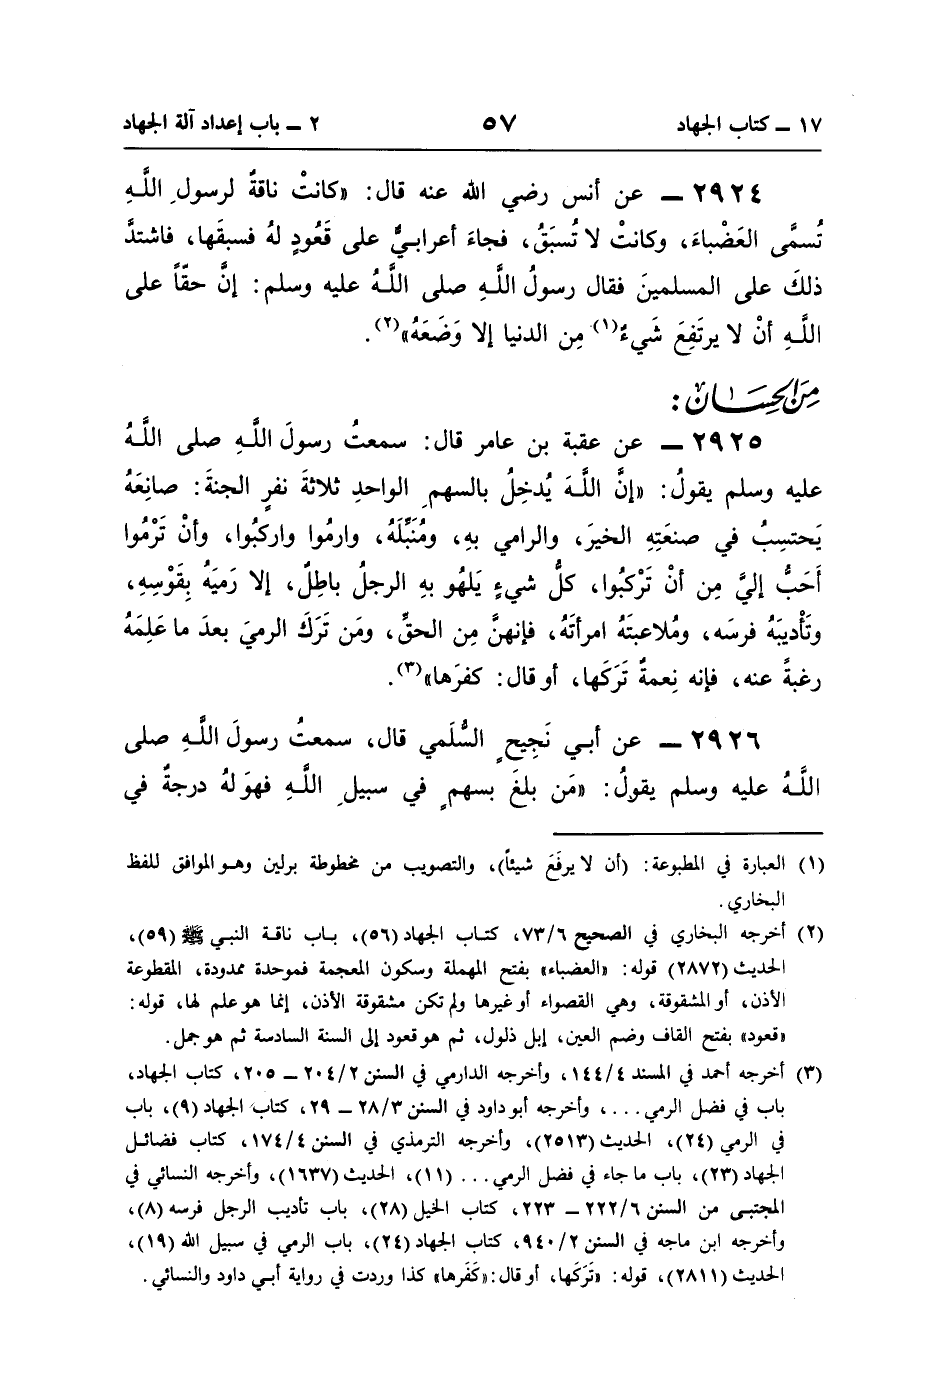 ١٧ ــ كتاب الجهاد ٥٧ ٢ ــ باب إعداد آلة الجهاد
٢٩٢٤ ــ عن أنس رضي الله عنه قال: «كانتْ ناقةٌ لرسولِ اللَّهِ
تُسمَّى العَضْباءَ، وكانتْ لا تُسبَقُ، فجاءَ أعرابيٌّ على قَعُودٍ لهُ فسبقَها، فاشتدَّ
ذلكَ على المسلمينَ فقال رسولُ اللَّهِ صلى اللَّهُ عليه وسلم: إنَّ حقّاً على
اللَّهِ أنْ لا يرتَفِعَ شَيءٌ(١) مِن الدنيا إلا وَضَعَهُ»(٢).
مِنَ الحِسَان:
٢٩٢٥ ــ عن عقبة بن عامر قال: سمعتُ رسولَ اللَّهِ صلى اللَّهُ
عليه وسلم يقولُ: «إنَّ اللَّهَ يُدخِلُ بالسهمِ الواحدِ ثلاثةَ نفرٍ الجنةَ: صانِعَهُ
يَحتسِبُ في صنعَتِهِ الخيرَ، والرامي بهِ، ومُنَبِّلَهُ، وارمُوا واركبُوا، وأنْ تَرْمُوا
أَحَبُّ إليَّ مِن أنْ تَرْكبُوا، كلُّ شيءٍ يَلهُو بهِ الرجلُ باطِلٌ، إلا رَميَهُ بِقَوْسِهِ،
وتَأْديبَهُ فرسَه، ومُلاعبتَهُ امرأتَهُ، فإنهنَّ مِن الحقِّ، ومَن تَرَكَ الرميَ بعدَ ما عَلِمَهُ
رغبةً عنه، فإنه نِعمةٌ تَرَكَها، أو قال: كفرَها»(٣).
٢٩٢٦ ــ عن أبي نَجِيحٍ السُّلَمي قال، سمعتُ رسولَ اللَّهِ صلى
اللَّهُ عليه وسلم يقولُ: «مَن بلغَ بسهمٍ في سبيلِ اللَّهِ فهوَ لهُ درجةٌ في
(١) العبارة في المطبوعة: (أن لا يرفَعَ شيئاً)، والتصويب من مخطوطة برلين وهو الموافق للفظ
البخاري.
(٢) أخرجه البخاري في الصحيح ٧٣/٦، كتاب الجهاد (٥٦)، باب ناقة النبي ﷺ (٥٩)،
الحديث (٢٨٧٢) قوله: «العضباء» بفتح المهملة وسكون المعجمة فموحدة ممدودة، المقطوعة
الأذن، أو المشقوقة، وهي القصواء أو غيرها ولم تكن مشقوقة الأذن، إنما هو علم لها، قوله:
«قعود» بفتح القاف وضم العين، إبل ذلول، ثم هو قعود إلى السنة السادسة ثم هو جمل.
(٣) أخرجه أحمد في المسند ١٤٤/٤، وأخرجه الدارمي في السنن ٢٠٤/٢ ــ ٢٠٥، كتاب الجهاد،
باب في فضل الرمي...، وأخرجه أبو داود في السنن ٢٨/٣ ــ ٢٩، كتاب الجهاد (٩)، باب
في الرمي (٢٤)، الحديث (٢٥١٣)، وأخرجه الترمذي في السنن ١٧٤/٤، كتاب فضائل
الجهاد (٢٣)، باب ما جاء في فضل الرمي... (١١)، الحديث (١٦٣٧)، وأخرجه النسائي في
المجتبى من السنن ٢٢٢/٦ ــ ٢٢٣، كتاب الخيل (٢٨)، باب تأديب الرجل فرسه (٨)،
وأخرجه ابن ماجه في السنن ٩٤٠/٢، كتاب الجهاد (٢٤)، باب الرمي في سبيل الله (١٩)،
الحديث (٢٨١١)، قوله: «تَرَكها، أو قال: «كَفَرها» كذا وردت في رواية أبي داود والنسائي.